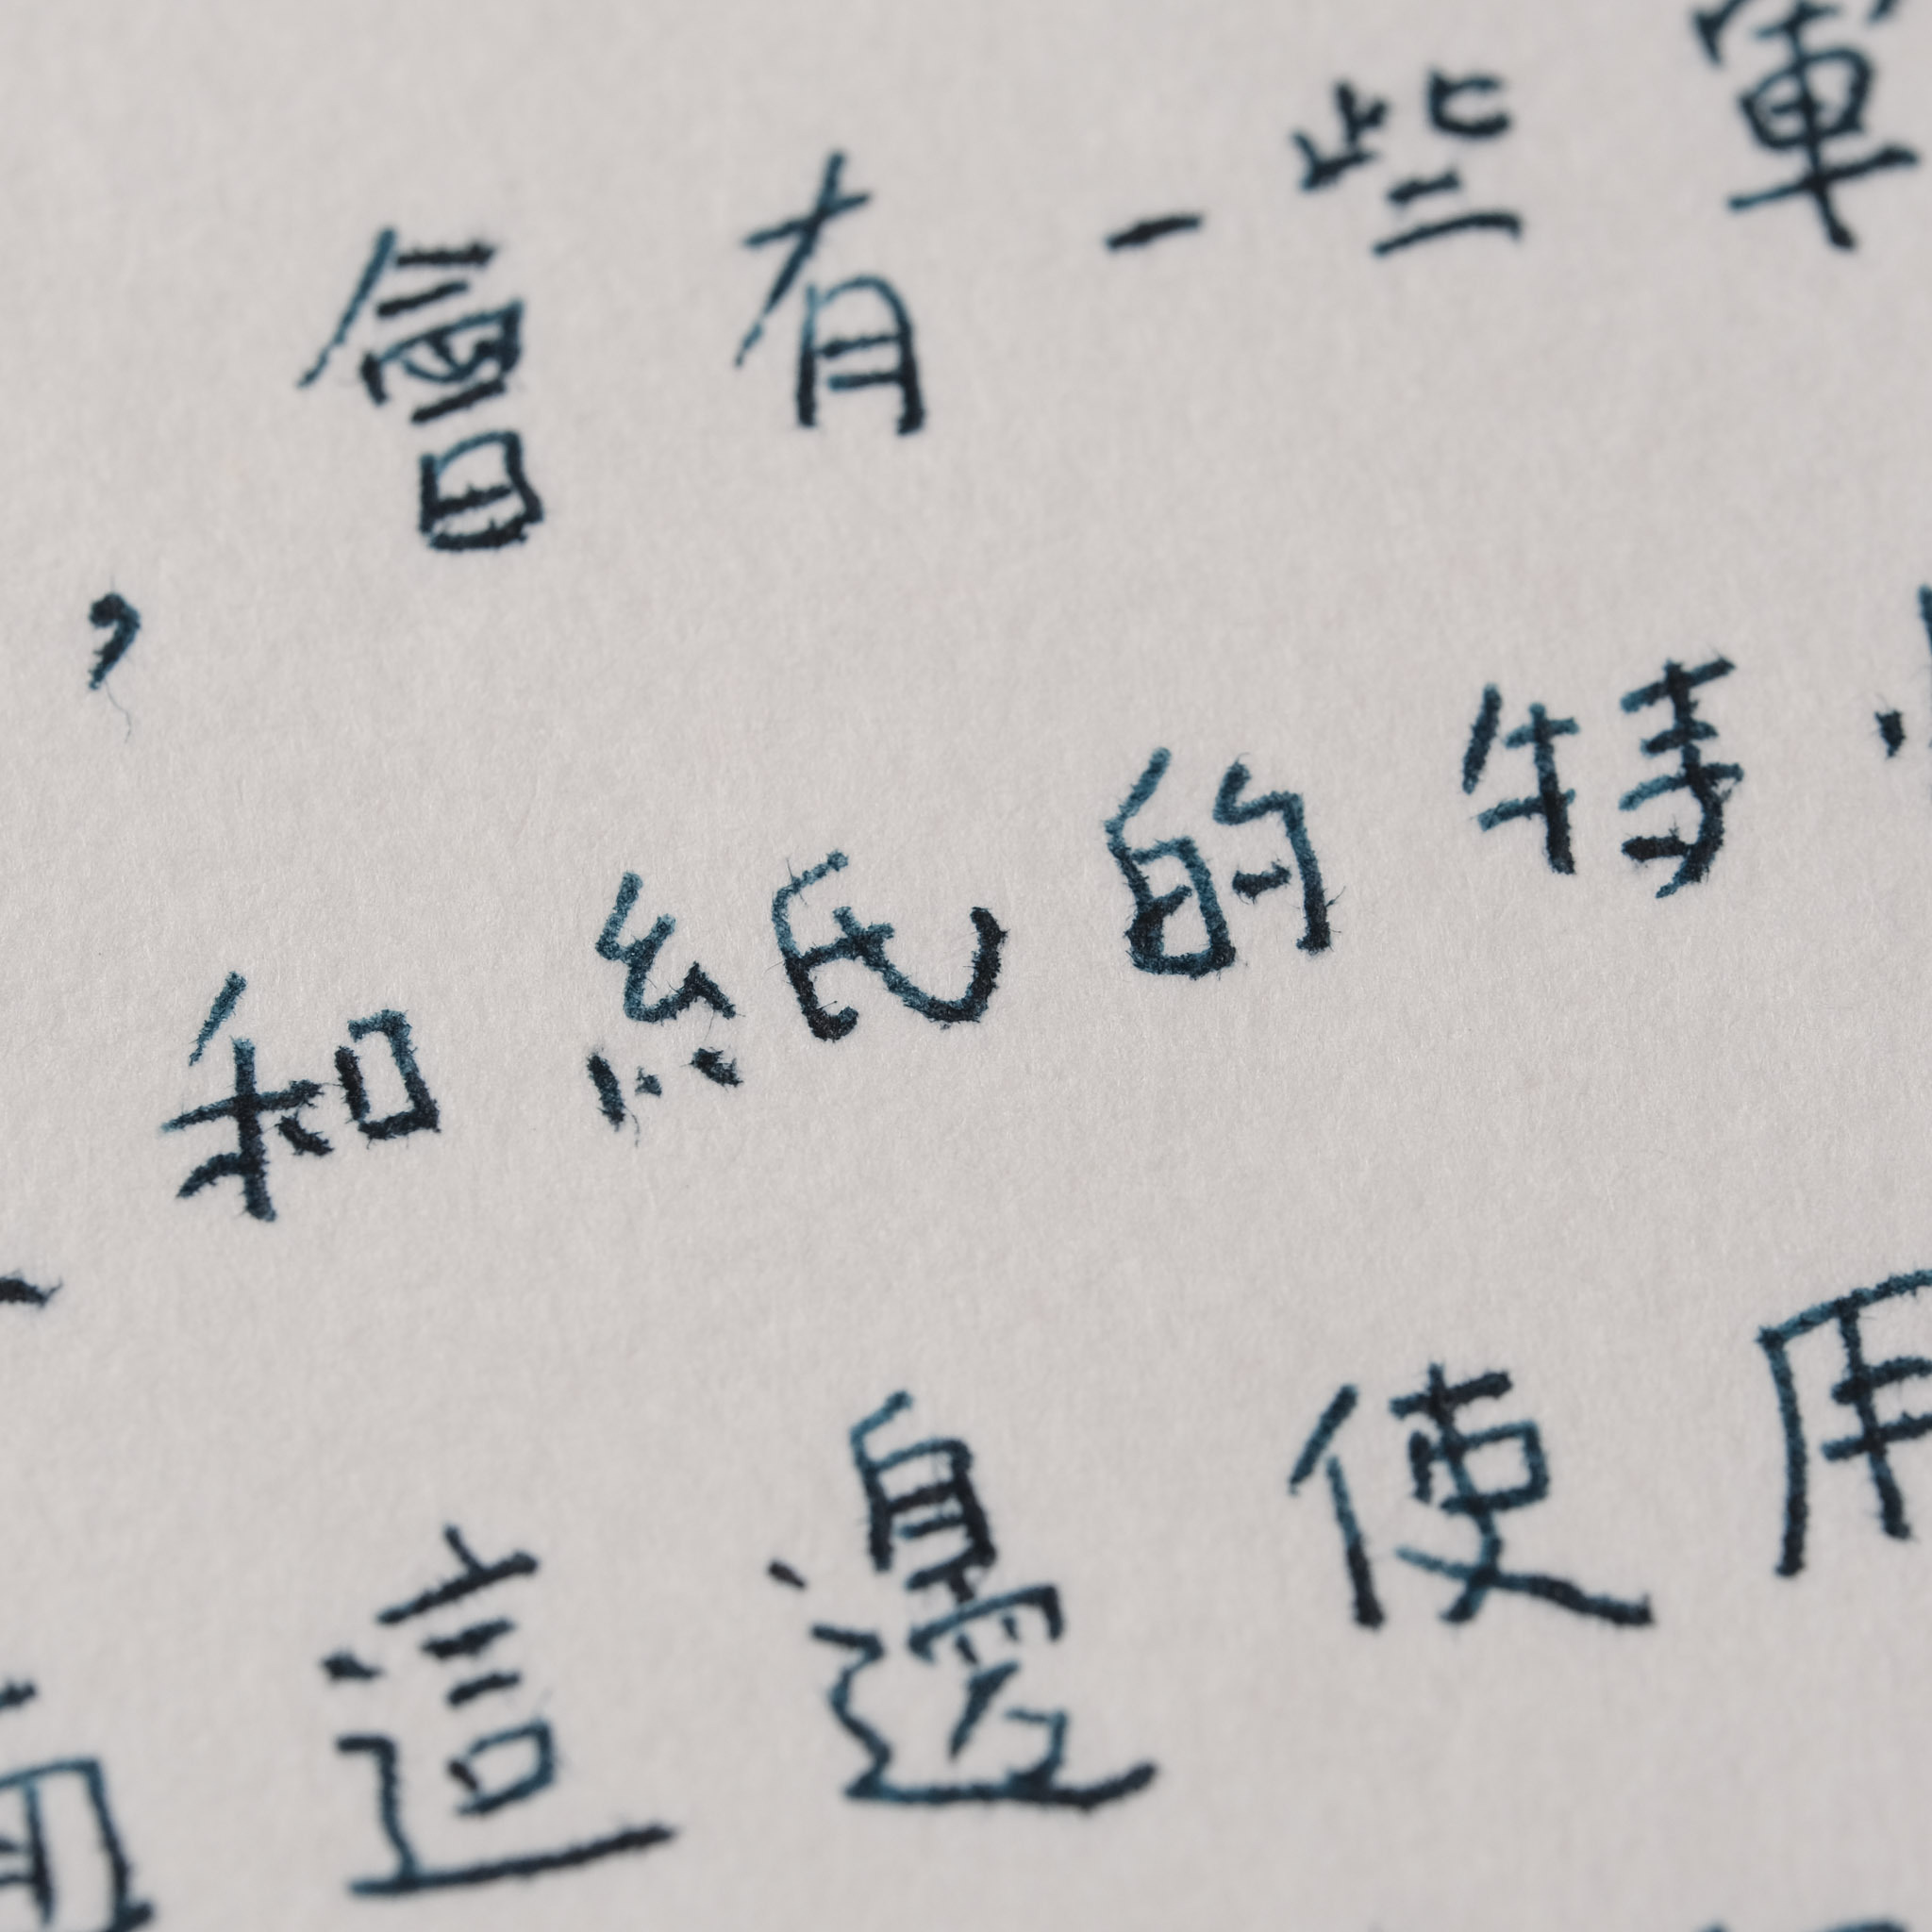 ，會有一些
和紙的特
這邊使用